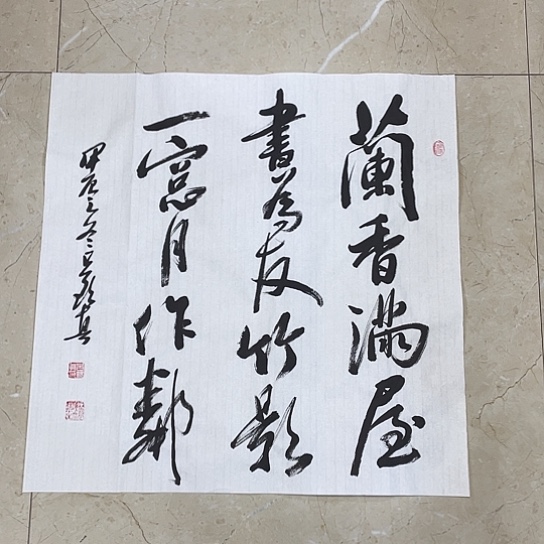 蘭香滿屋
書為友竹影
一窓月作鄰
甲辰之冬